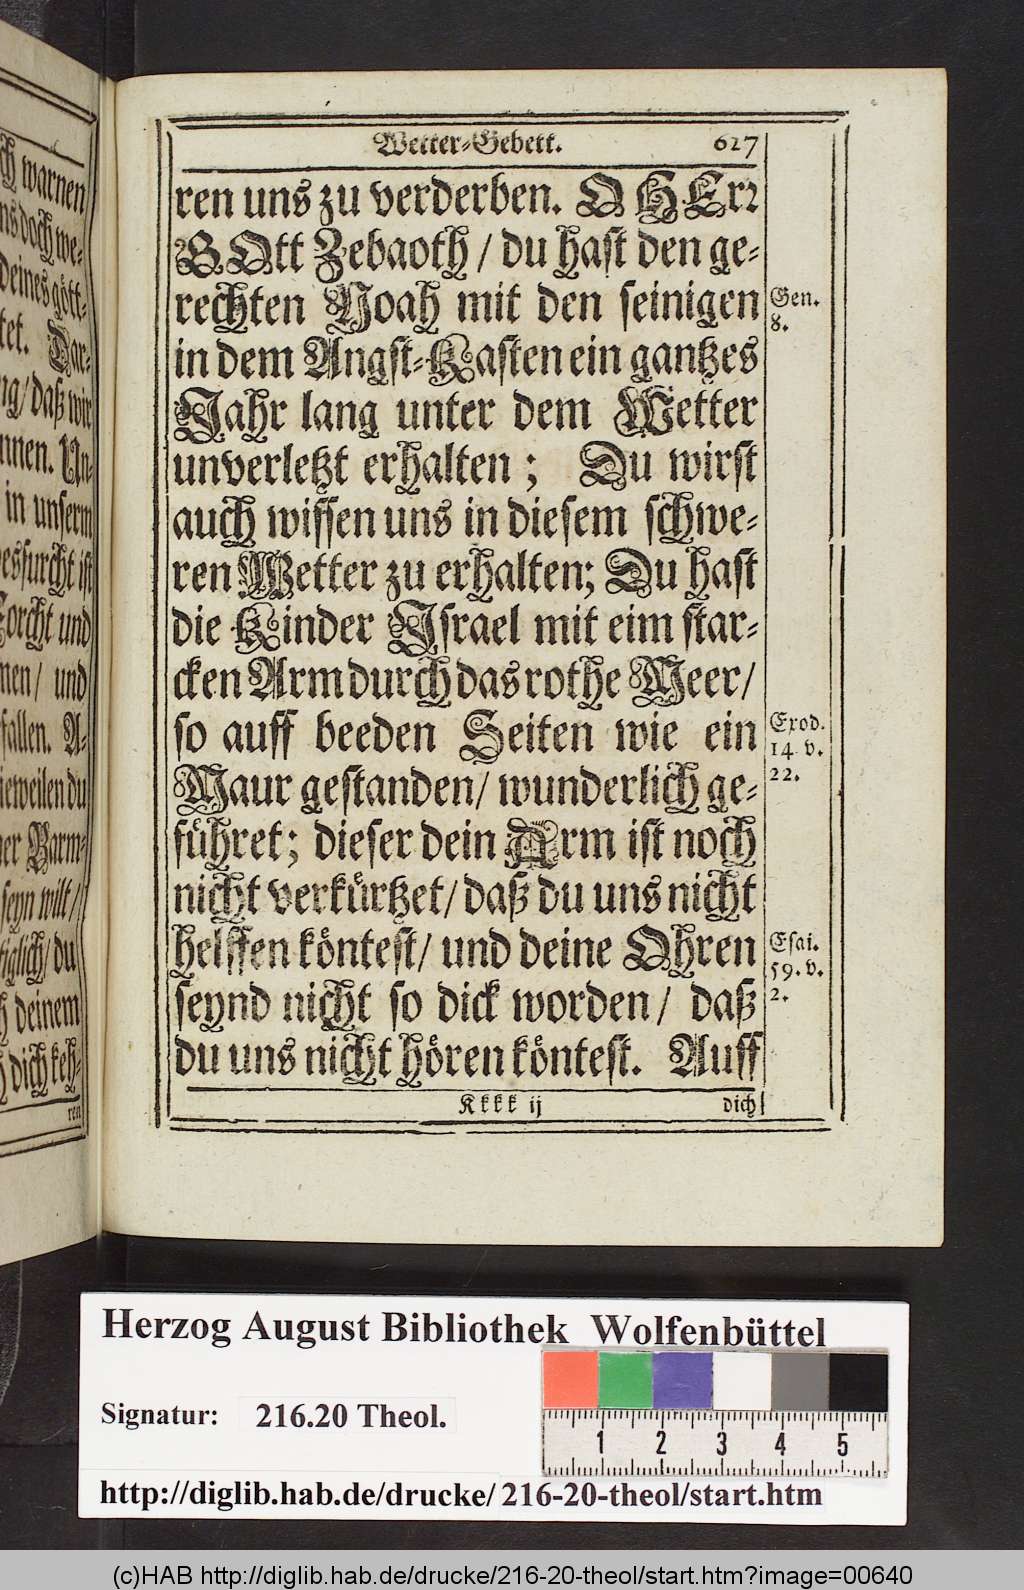 ch warnen
ns doch we-
deines gött-
tet. Dar-
ng/ daß wir
nnen. Un-
in unserm
esfurcht ist
Forcht und
men/ und
fallen. A-
ieweilen du
ner Barm-
seyn wilt/
tiglich/ du
h deinem
h dich keh-
ren
Wetter-Gebett. 627
ren uns zu verderben. O HErr
GOtt Zebaoth / du hast den ge-
rechten Noah mit den seinigen
in dem Angst-Kasten ein gantzes
Jahr lang unter dem Wetter
unverletzt erhalten ; Du wirst
auch wissen uns in diesem schwe-
ren Wetter zu erhalten; Du hast
die Kinder Israel mit eim star-
cken Arm durch das rothe Meer/
so auff beeden Seiten wie ein
Maur gestanden/ wunderlich ge-
führet; dieser dein Arm ist noch
nicht verkürtzet/ daß du uns nicht
helffen köntest/ und deine Ohren
seynd nicht so dick worden/ daß
du uns nicht hören köntest. Auff
Kkkk ij dich
Gen.
8.
Exod.
14 v.
22.
Esai.
59. v.
2.
Herzog August Bibliothek Wolfenbüttel
Signatur: 216.20 Theol.
1 2 3 4 5
http://diglib.hab.de/drucke/216-20-theol/start.htm
(c)HAB http://diglib.hab.de/drucke/216-20-theol/start.htm?image=00640